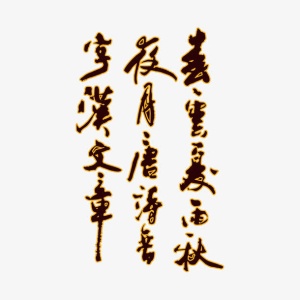 春云夏雨秋
夜月唐诗晋
字汉文章